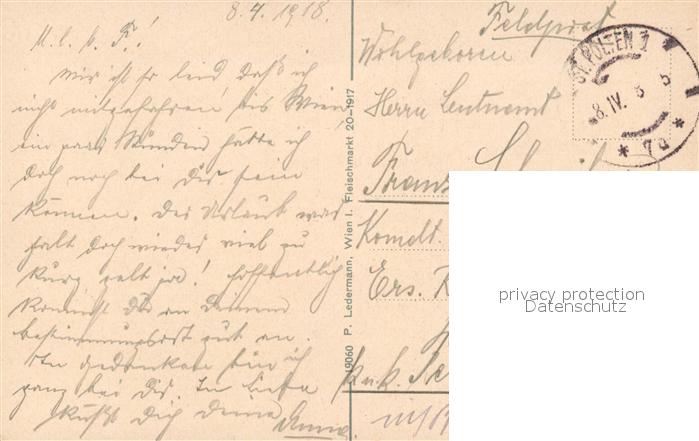 8.4.1918.
M. l. h. F.!
Mir ist so leid daß ich
nicht mitgefahren bis Wien,
ein paar Stunden hätte ich
doch noch bei Dir sein
können. Der Urlaub war
halt doch wieder viel zu
kurz gelt ja! Hoffentlich
kommst Du an Deinem
Bestimmungsort gut an.
In Gedanken bin ich
ganz bei Dir. In Liebe
küßt Dich Deine
19060 P. Ledermann, Wien I. Fleischmarkt 20-1917
Feldpost
Wohlgeboren
Herrn Leutnant
Franz
Komdt.
Ers.
k.u.k.
ST. PÖLTEN 1
*8.IV.
* 7a *
privacy protection
Datenschutz